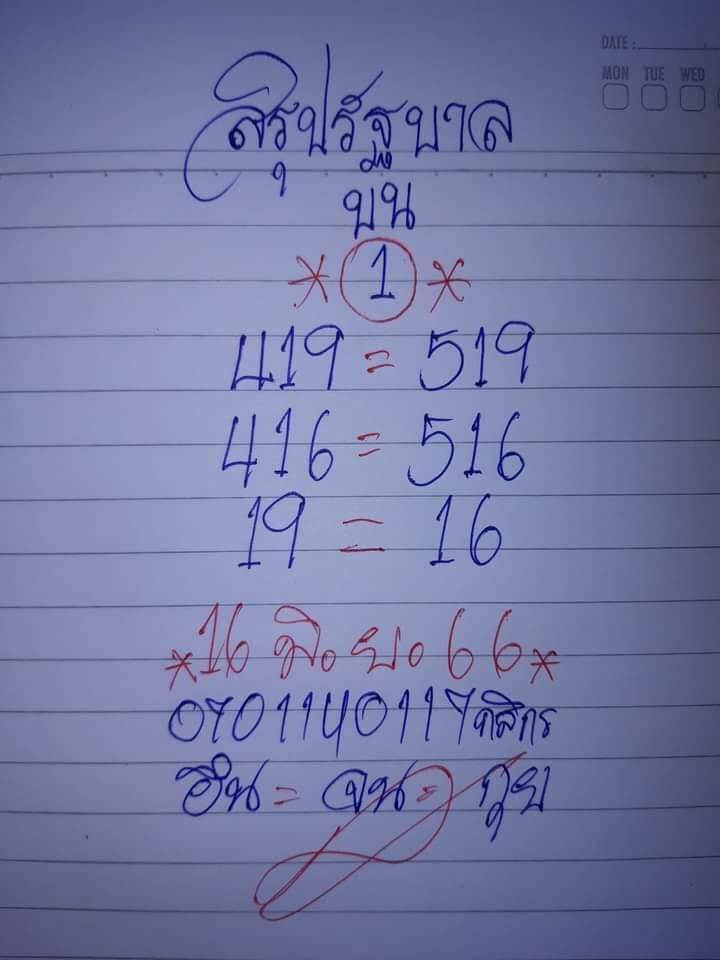 DATE :
MON TUE WED
สรุปรัฐบาล
บน
* 1 *
419 = 519
416 = 516
19 = 16
*16 มิ.ย. 66*
0701140117 กสิกร
= จน =